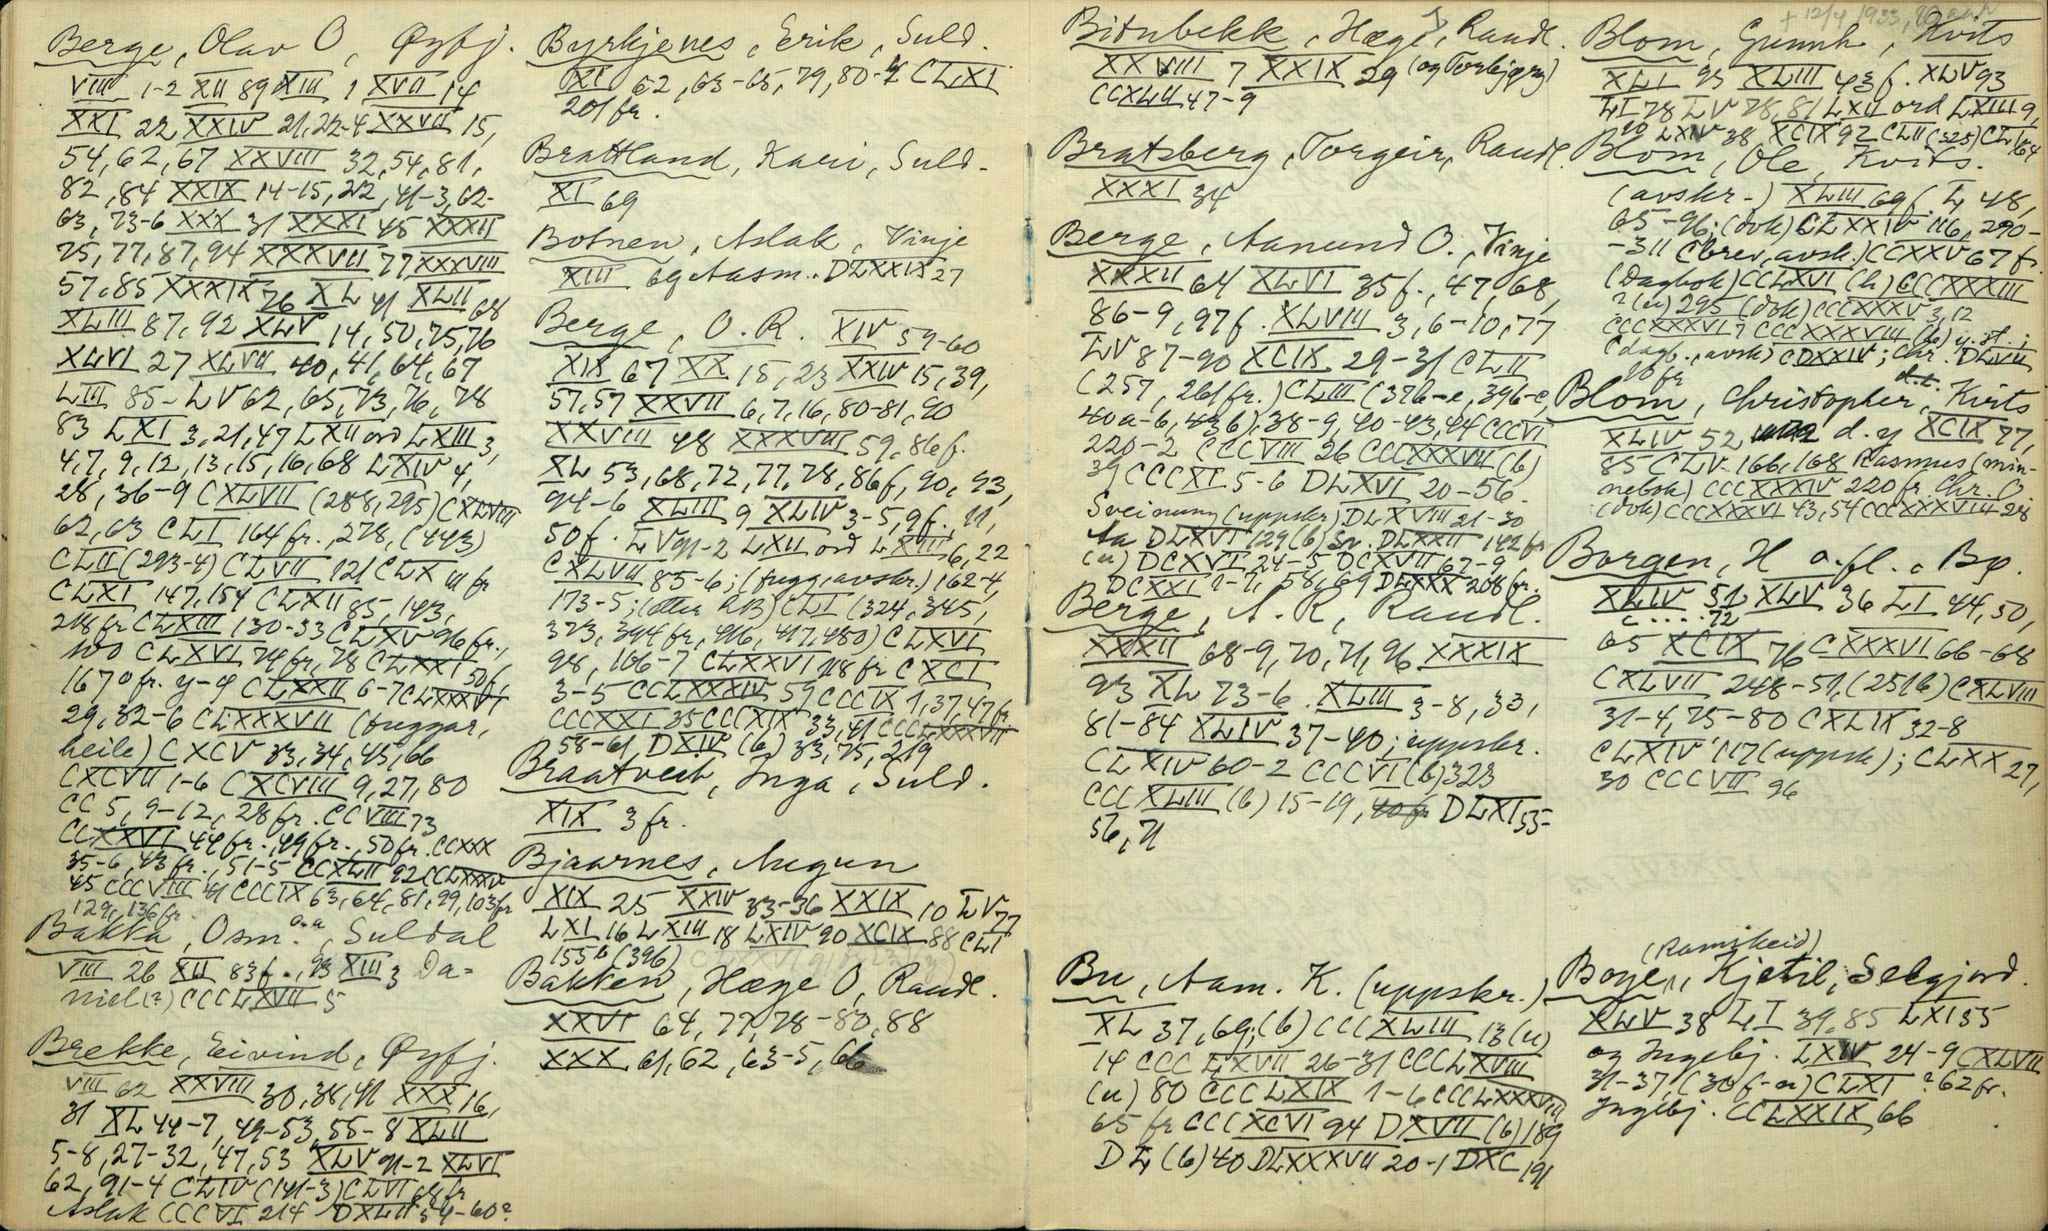 Berge, Olav O, Øyfj.
VIII 1-2 XII 89 XIII 1 XVII 14
XXI 22 XXIV 21, 22-4 XXVII 15,
54, 62, 67 XXVIII 32, 54, 81,
82, 84 XXIX 14-15, 22, 41-3, 62-
63, 73-6 XXX 31 XXXI 45 XXXII
75, 77, 87, 94 XXXVII 77 XXXVIII
57, 85 XXXIX 76 XL 41 XLII 68
XLIII 87, 92 XLV 14, 50, 75, 76
XLVI 27 XLVII 40, 41, 64, 67
LIII 85- LV 62, 65, 73, 76, 78
83 LXI 3, 21, 47 LXII ord LXIII 3,
4, 7, 9, 12, 13, 15, 16, 68 LXIV 4,
28, 36-9 CXLVII (288, 295) CXLVIII
62, 63 CLI 164 fr., 278, (443)
CLII (293-4) CLVII 121 CLX fr
CLXI 147, 154 CLXII 85, 143,
218 fr CLXIII 130-33 CLXV 96 fr.,
100 CLXVI 74 fr, 78 CLXXI 50 f,
167 fr. CLXXII 6-7 CLXXXVI
29, 32-6 CLXXXVII (buggar,
heile) CXCV 33, 34, 45, 66
CXCVII 1-6 CXCVIII 9, 27, 80
CC 5, 9-12, 28 fr. CCVIII 73
CCXXVI 44 fr., 49 fr., 50 fr. CCXXX
35-6, 43 fr., 51-5 CCXLII 92 CCLXXXV
45 CCCVIII 41 CCCIX 63, 64, 81, 99, 103 fr
129, 136 fr.
Bakka, Osm. a.a, Suldal
VIII 26 XII 83 f., 93 XIII 3 Da-
niel (?) CCCLXVII 5
Brekke, Eivind, Øyfj.
VIII 62 XXVIII 30, 38, 41 XXX 16,
31 XL 44-7, 49-53, 55-8 XLII
5-8, 27-32, 47, 53 XLV 91-2 XLVI
62, 91-4 CLIV (141-3) CLVI 68 fr
Aslak CCCVI 214 DXLII 54-60?
Byrkjenes, Erik, Suld.
XI 62, 63-65, 79, 80- CLXI
201 fr.
Brattland, Kari, Suld.
XI 69
Botnen, Aslak, Vinje
XIII 69 Aasm. DLXXIX 27
Berge, O. R. XIV 59-60
XIX 67 XX 15, 23 XXIV 15, 39,
57, 57 XXVII 6, 7, 16, 80-81, 90
XXVIII 48 XXXVIII 59, 86 f.
XL 53, 68, 72, 77, 78, 86 f, 90, 93,
94-6 XLIII 9 XLIV 3-5, 9 f. 11,
50 f. LV 91-2 LXII ord LXIII 6, 22
CXLVII 85-6; (avskr.) 162-4,
173-5; (etter RB) CLI (324, 345,
373, 394 fr, 416, 417, 480) CLXVI
98, 106-7 CLXXVI 118 fr CXCI
3-5 CCLXXXIV 59 CCCIX 1, 37, 47 fr.
CCCXXI 35 CCCXIX 33, 41 CCCLXXXVII
58-61, DXIV (b) 33, 75, 219
Braatveit, Inga, Suld.
XIX 3 fr.
Bjaarnes, Augun
XIX 25 XXIV 33-36 XXIX 10 LV 77
LXI 16 LXIII 18 LXIV 90 XCIX 88 CLI
155 b (396)
Bakken, Hæge O, Raudl.
XXVI 64, 77, 78-80, 88
XXX 61, 62, 63-5, 66
Bitubekk, Hæge, Raudl.
XXVIII 7 XXIX 29 (og Torbjørg)
CCXLII 47-9
Bratsberg, Torgeir, Raudl.
XXXI 34
Berge, Aanund O., Vinje
XXXII 64 XLVI 35 f., 47, 68,
86-9, 97 f. XLVIII 3, 6-10, 77
LV 87-90 XCIX 29-31 CLII
(257, 261 fr.) CLIII (376-e, 396-c,
40a-b, 43b), 38-9, 40-43, 44 CCCVI
220-2 CCCVIII 26 CCCXXXVII (b)
39 CCCXI 5-6 DLXVI 20-56.
Sveinung (uppskr) DLXVIII 21-30
Aa DLXVI 129 (b) Sv. DLXXII 142 fr
(u) DCXVI 24-5 DCXVII 67-9
DCXXI 1-7, 58, 69 DLXXX 208 fr.
Berge, A. R, Raudl.
XXXII 68-9, 70, 71, 96 XXXIX
93 XL 73-6. XLIII 3-8, 33,
81-84 XLIV 37-40; uppskr.
CLXIV 60-2 CCCVI (b) 323
CCCXLIII (b) 15-19, DLXI 55-
56, 71
Bu, Aam. K. (uppskr.)
XL 37, 69; (b) CCCXLIII 13 (u)
14 CCCLXVII 26-31 CCCLXVIII
(u) 80 CCCLXIX 1-6 CCCLXXXVIII
65 fr CCCXCVI 94 DXVII (b) 189
DL (b) 40 DLXXXVII 20-1 DXC 191
+ 12/4 1933,
Blom, Gunnh., Kvits
XLI 93 XLIII 43 f. XLV 93
LI 78 LV 78, 81 LXII ord LXIII 9,
10 LXIV 38 XCIX 92 CLII (325) CLV 164
Blom, Ole, Kvits.
(avskr.-) XLIII 69 f. L 48,
65-96; (dok) CLXXIV 116, 290-
-311 (brev, avsk.) CCXXV 67 f.
(Dagbok) CCLXVI (h) CCCXXXIII
? (u) 295 (dok) CCCXXXV 3, 12
CCCXXXVI 7 CCCXXXVIII (b)
(dagb., avsk) CDXXIV; Chr. DLVIII
90 fr
Blom, Christopher d.e., Kvits
XLIV 52 d. y XCIX 77,
85 CLV 166, 168 Rasmus (min-
nebok) CCCXXXIV 220 fr. Chr. O
(dok) CCCXXXVI 43, 54 CCCXXXVIII 28
Borgen, H o.fl., Bø.
XLIV 51 XLV 36 LI 44, 50,
65 XCIX 76 CXXXVI 66-68
CXLVII 248-51, (251b) CXLVIII
31-4, 75-80 CXLIX 32-8
CLXIV 117 (uppsk); CLXX 27,
30 CCCVII 96
(Ramskeid)
Boye, Kjetil, Selgjord.
XLV 38 LI 39, 85 LXI 35
og Ingebj. LXIV 24-9 CXLVII
31-37, (30 f-u) CLXI ? 62 fr.
Ingebj. CCLXXIX 66